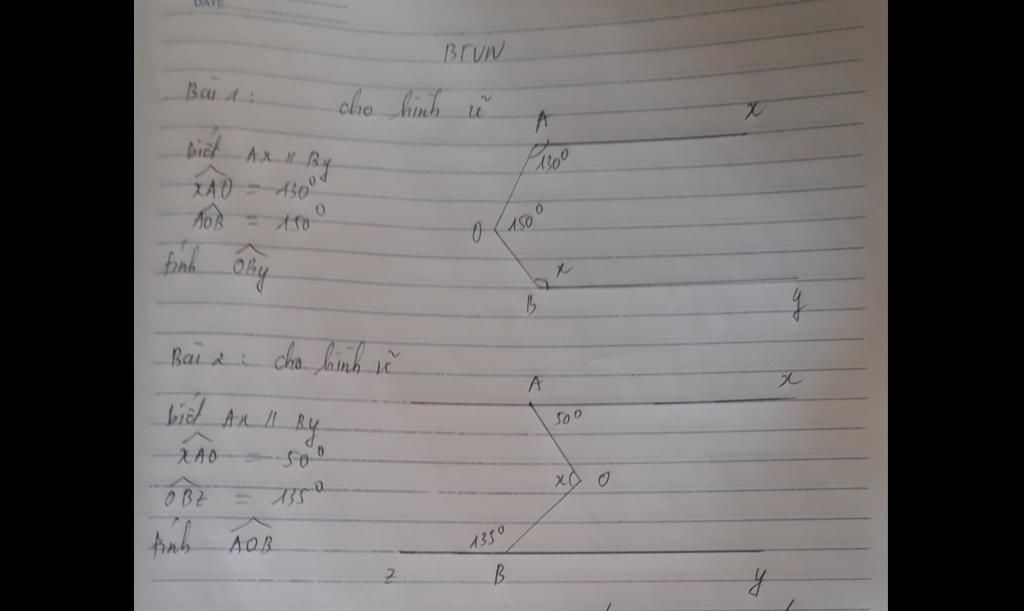 DATE
BTVN
Bài 1 : cho hình vẽ
biết Ax // By
xAO = 130°
AOB = 150°
tính OBy
A
x
130°
O
150°
x
B
y
Bài 2 : cho hình vẽ
biết Ax // By
xAO = 50°
OBz = 135°
tính AOB
A
x
50°
x
O
135°
z
B
y